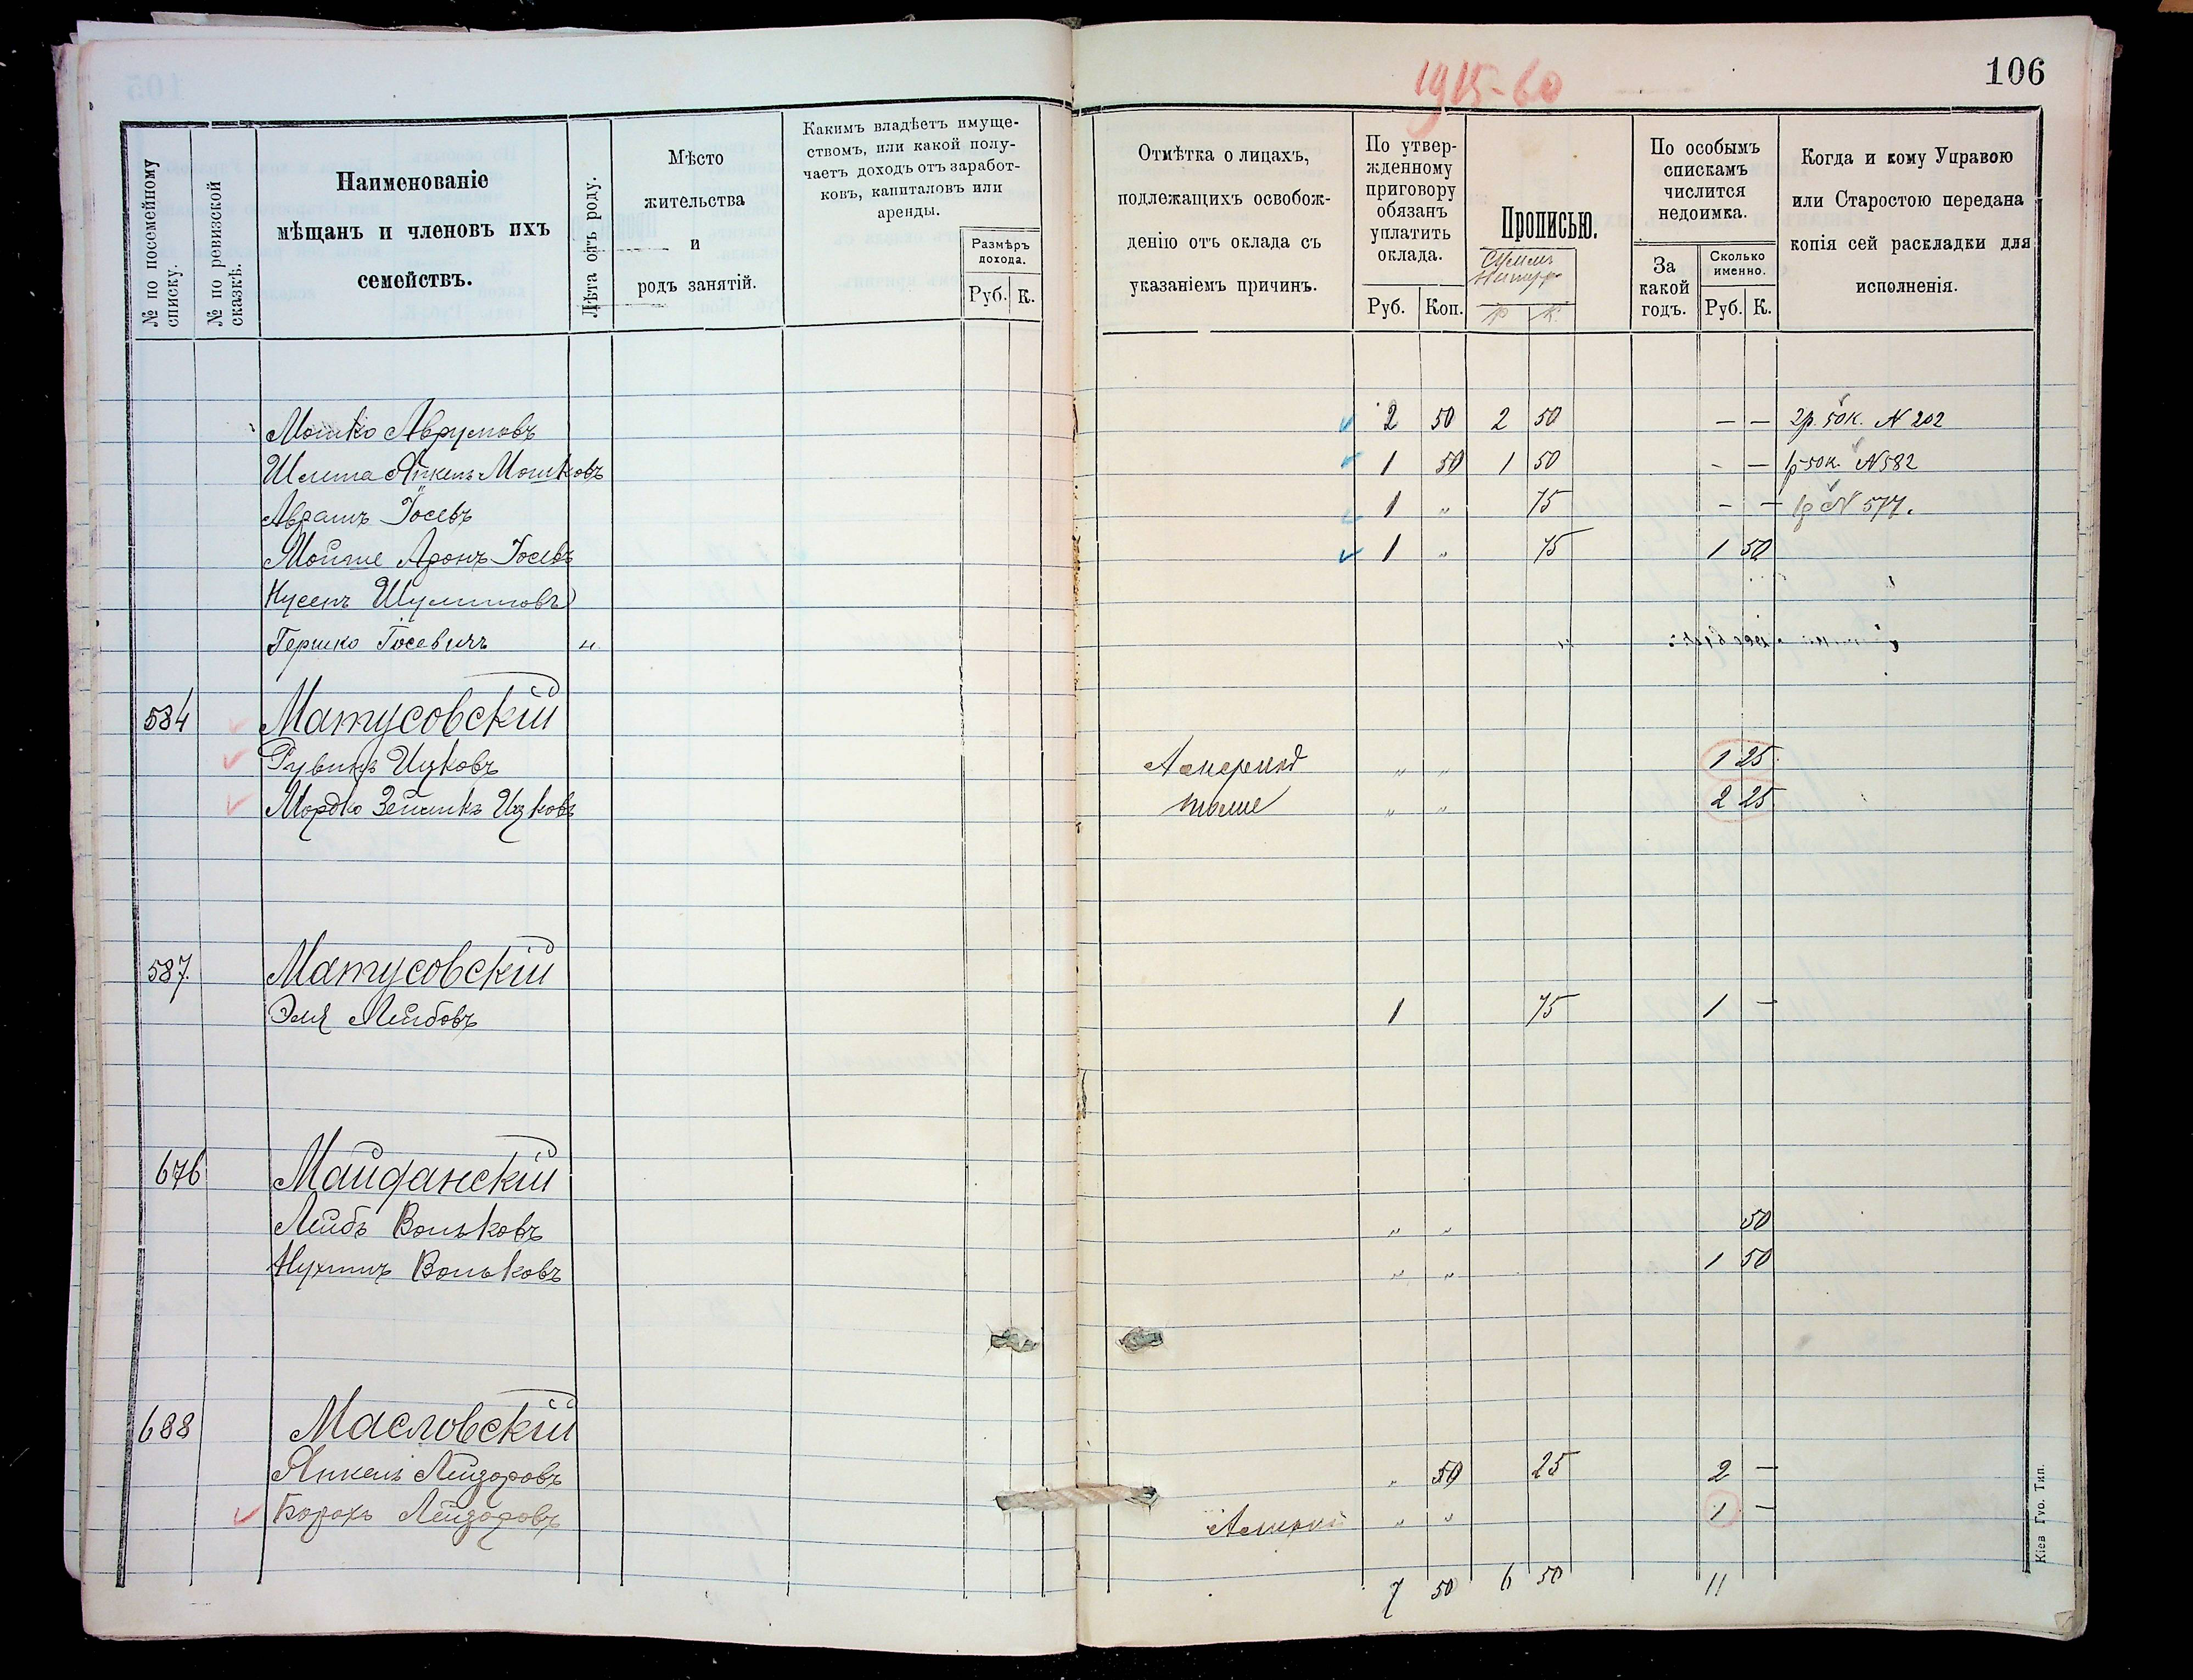 1915-60
106
№ по посемейному списку.
№ по ревизской сказкѣ.
Наименованіе
мѣщанъ и членовъ ихъ
семействъ.
Лѣта отъ роду.
Мѣсто
жительства
и
родъ занятій.
Какимъ владѣетъ имуще-
ствомъ, или какой полу-
чаетъ доходъ отъ заработ-
ковъ, капиталовъ или
аренды.
Размѣръ
дохода.
Руб. К.
Отмѣтка о лицахъ,
подлежащихъ освобож-
денію отъ оклада съ
указаніемъ причинъ.
По утвер-
жденному
приговору
обязанъ
уплатить
оклада.
Руб. Коп.
Прописью.
р к.
По особымъ
спискамъ
числится
недоимка.
За
какой
годъ.
Сколько
именно.
Руб. К.
Когда и кому Управою
или Старостою передана
копія сей раскладки для
исполненія.
Мошко Аврумовъ 2 50 2 50 — — 2р. 50к. N 202
Шлема Янкель Мошковъ 1 50 1 50 - — 1р 50к. N 582
Аврамъ Іосевъ 1 „ 75 - — 1р N 577.
Мойше Аронъ Іосевъ 1 „ 75 1 50
Нусенъ Шулимовъ
Гершко Іосевичъ
584 Матусовскій
Рувинъ Ицковъ „ „ 1 25
Мордко Зейликъ Ицковъ тоже „ „ 2 25
587. Матусовскій
Эля Лейбовъ 1 75 1 —
676 Майданскій
Лейбъ Вольковъ „ „ 50
Нухимъ Вольковъ „ „ 1 50
688 Масловскій
Янкель Лейзоровъ „ 50 25 2 —
Борохъ Лейзоровъ „ „ 1 —
7 50 6 50 11
Кіев Губ. Тип.